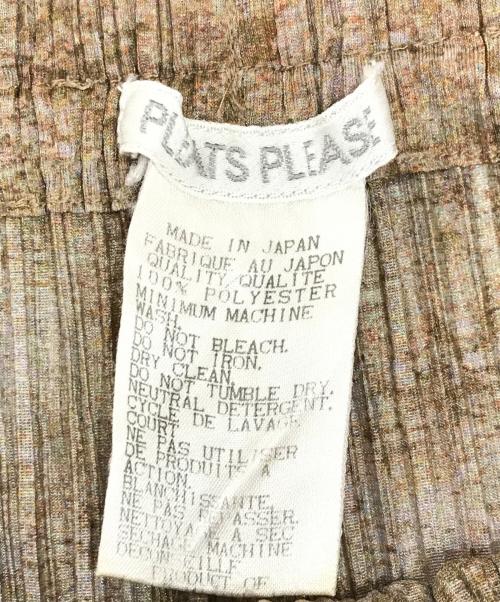 PLEATS PLEASE
MADE IN JAPAN
FABRIQUE AU JAPON
QUALITY QUALITE
100% POLYESTER
MINIMUM MACHINE
WASH.
DO NOT BLEACH.
DO NOT IRON.
DRY CLEAN.
DO NOT TUMBLE DRY.
NEUTRAL DETERGENT.
CYCLE DE LAVAGE
COURT.
NE PAS UTILISER
DE PRODUITS A
ACTION.
BLANCHISSANTE.
NE PAS REPASSER.
NETTOYAGE A SEC
SECHAGE MACHINE
PRODUCT OF